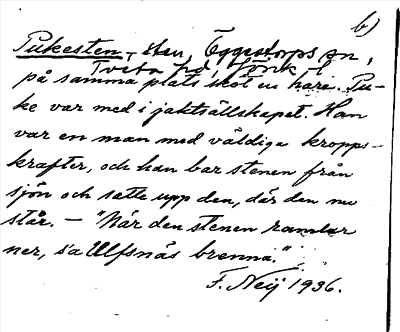 b)
Pukesten, sten, Eggestorps sn,
Tveta hd, Jönk. l.
på samma plats sköt en hare. Pu-
ke var med i jaktsällskapet. Han
var en man med väldiga kropps-
krafter, och han bar stenen från
sjön och satte upp den, där den nu
står. – "När den stenen ramlar
ner, s'a Ulfsnäs brenna."
F. Neij 1936.